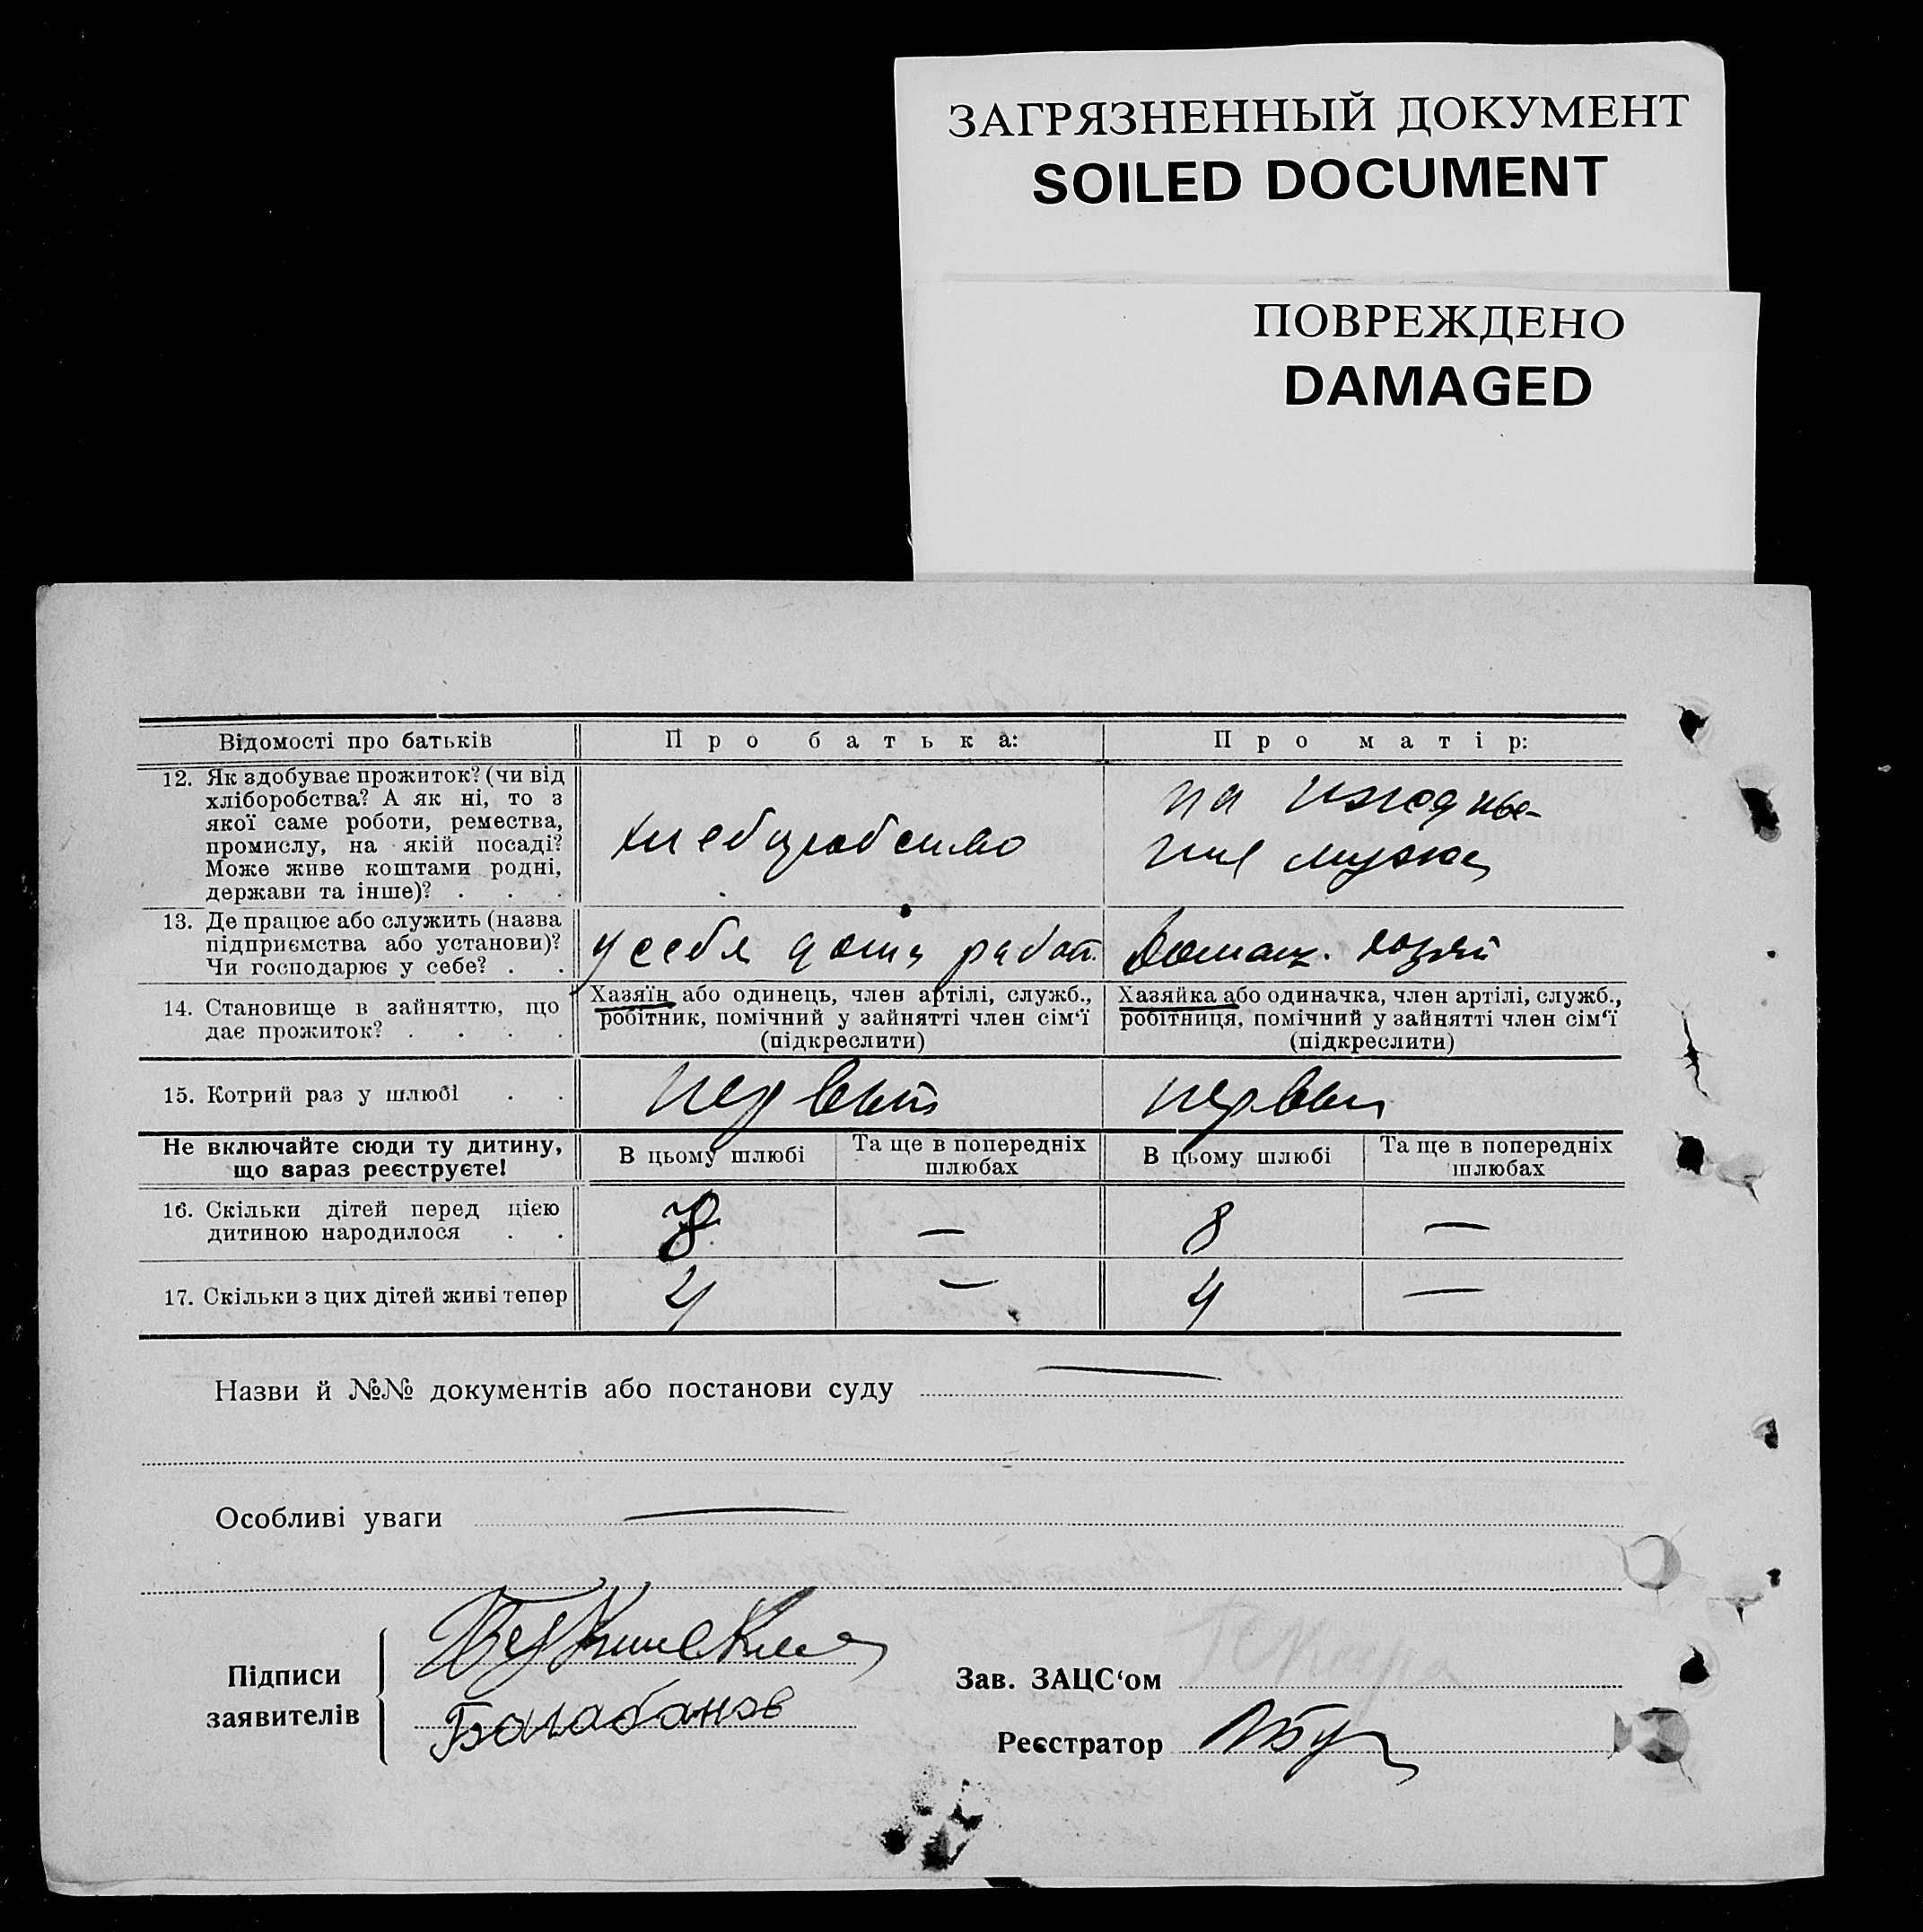 ЗАГРЯЗНЕННЫЙ ДОКУМЕНТ
SOILED DOCUMENT
ПОВРЕЖДЕНО
DAMAGED
Відомості про батьків
Про батька:
Про матір:
12. Як здобуває прожиток? (чи від
хліборобства? А як ні, то з
якої саме роботи, ремества,
промислу, на якій посаді?
Може живе коштами родні,
держави та інше)? . . .
хлебуробство
на иждиве-
ния мужа
13. Де працює або служить (назва
підприємства або установи)?
Чи господарює у себе? . .
у себя дома работ.
домаш. хозяй
14. Становище в зайняттю, що
дає прожиток? . . . .
Хазяїн або одинець, член артілі, служб.,
робітник, помічний у зайнятті член сім‘ї
(підкреслити)
Хазяйка або одиначка, член артілі, служб.,
робітниця, помічний у зайнятті член сім‘ї
(підкреслити)
15. Котрий раз у шлюбі . .
первый
первый
Не включайте сюди ту дитину,
що зараз реєструєте!
В цьому шлюбі
Та ще в попередніх
шлюбах
В цьому шлюбі
Та ще в попередніх
шлюбах
16. Скільки дітей перед цією
дитиною народилося . .
8 — 8 —
17. Скільки з цих дітей живі тепер
4 — 4 —
Назви й №№ документів або постанови суду —
Особливі уваги —
Підписи
заявителів
Балабанов
Зав. ЗАЦС‘ом
Реєстратор